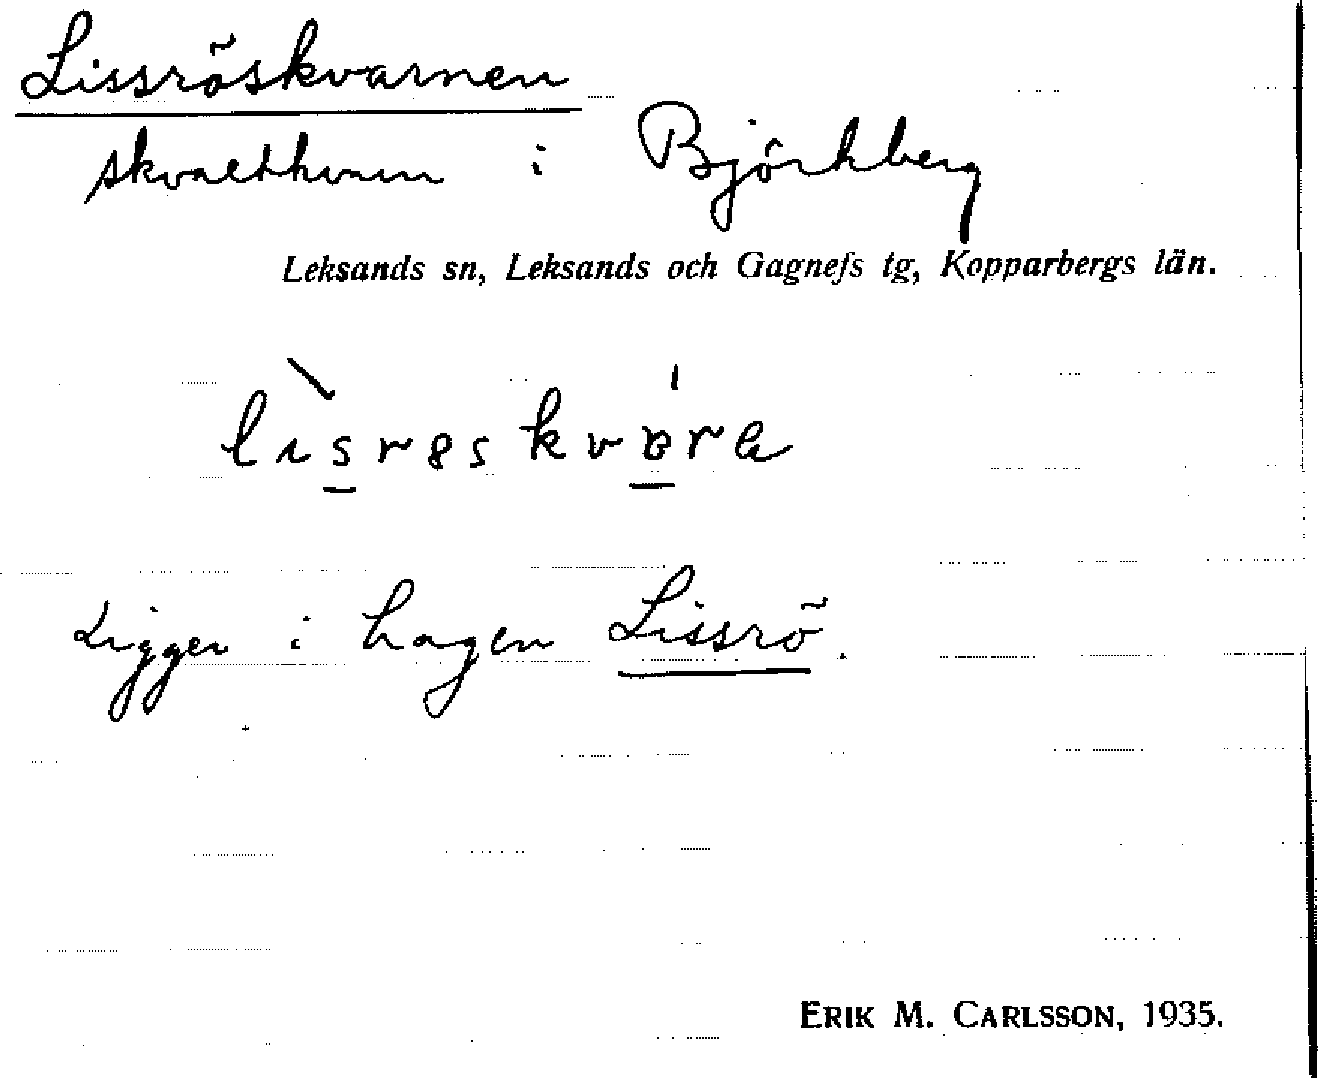 Lissröskvarnen
skvaltkvarn i Björkberg
Leksands sn, Leksands och Gagnefs tg, Kopparbergs län.
Ligger i hagen Lissrö.
ERIK M. CARLSSON, 1935.